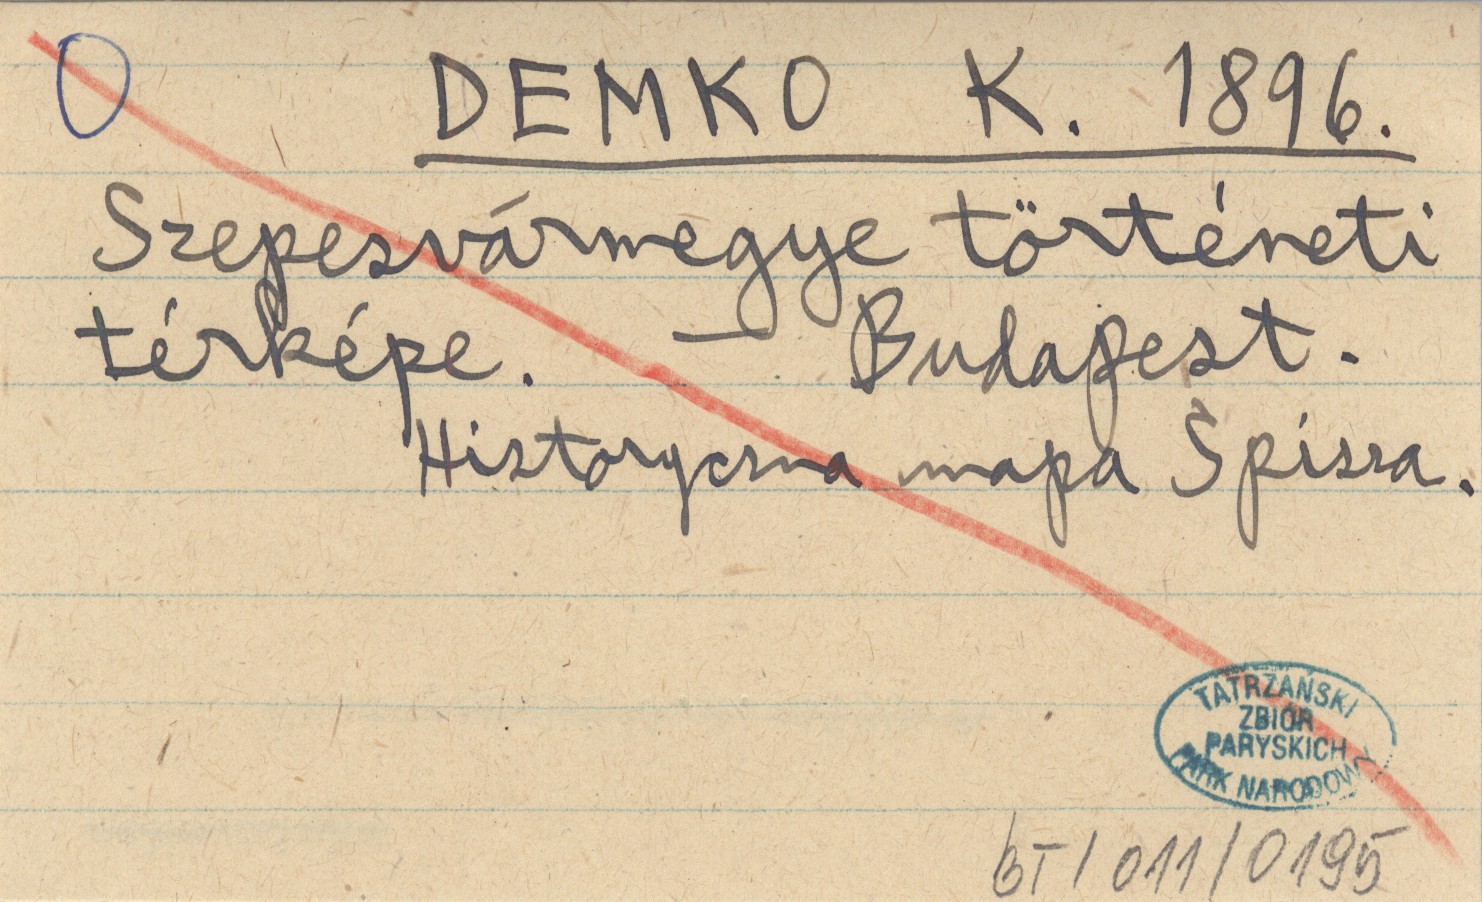 O DEMKO K. 1896.
Szepesvármegye történeti
térképe. — Budapest.
Historyczna mapa Spisza.
TATRZAŃSKI
ZBIÓR
PARYSKICH
PARK NARODOWY
BT/011/0195